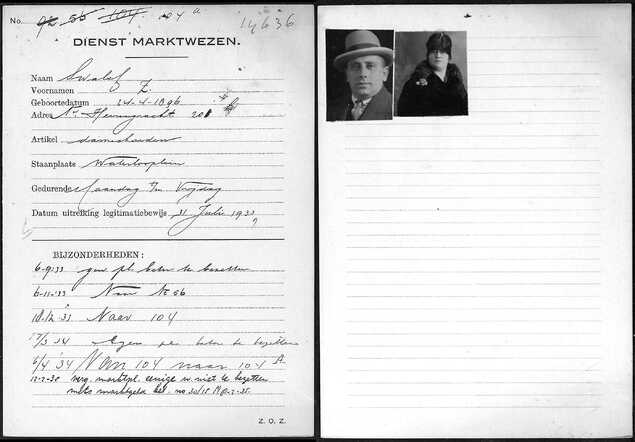 No. 92 56 104 104 a 14636
DIENST MARKTWEZEN.
Naam Swalef
Voornamen J Z.
Geboortedatum 24-4-1896
Adres N. Heerengracht 20
Artikel dameshoeden
Staanplaats Waterlooplein
Gedurende Maandag t/m Vrijdag
Datum uitreiking legitimatiebewijs 31 Julie 1933
BIJZONDERHEDEN:
6-9-33 geen pl. beter te bezetten
6-11-33 Naar No 56
18.12.33 Naar 104
17/3 34 pl. beter te bezetten
6/4 '34 Van 104 naar 104 A
12-2-35 verg. marktpl. eenige w. niet te bezetten
mits marktgeld bet. no 30/15
Z. O. Z.